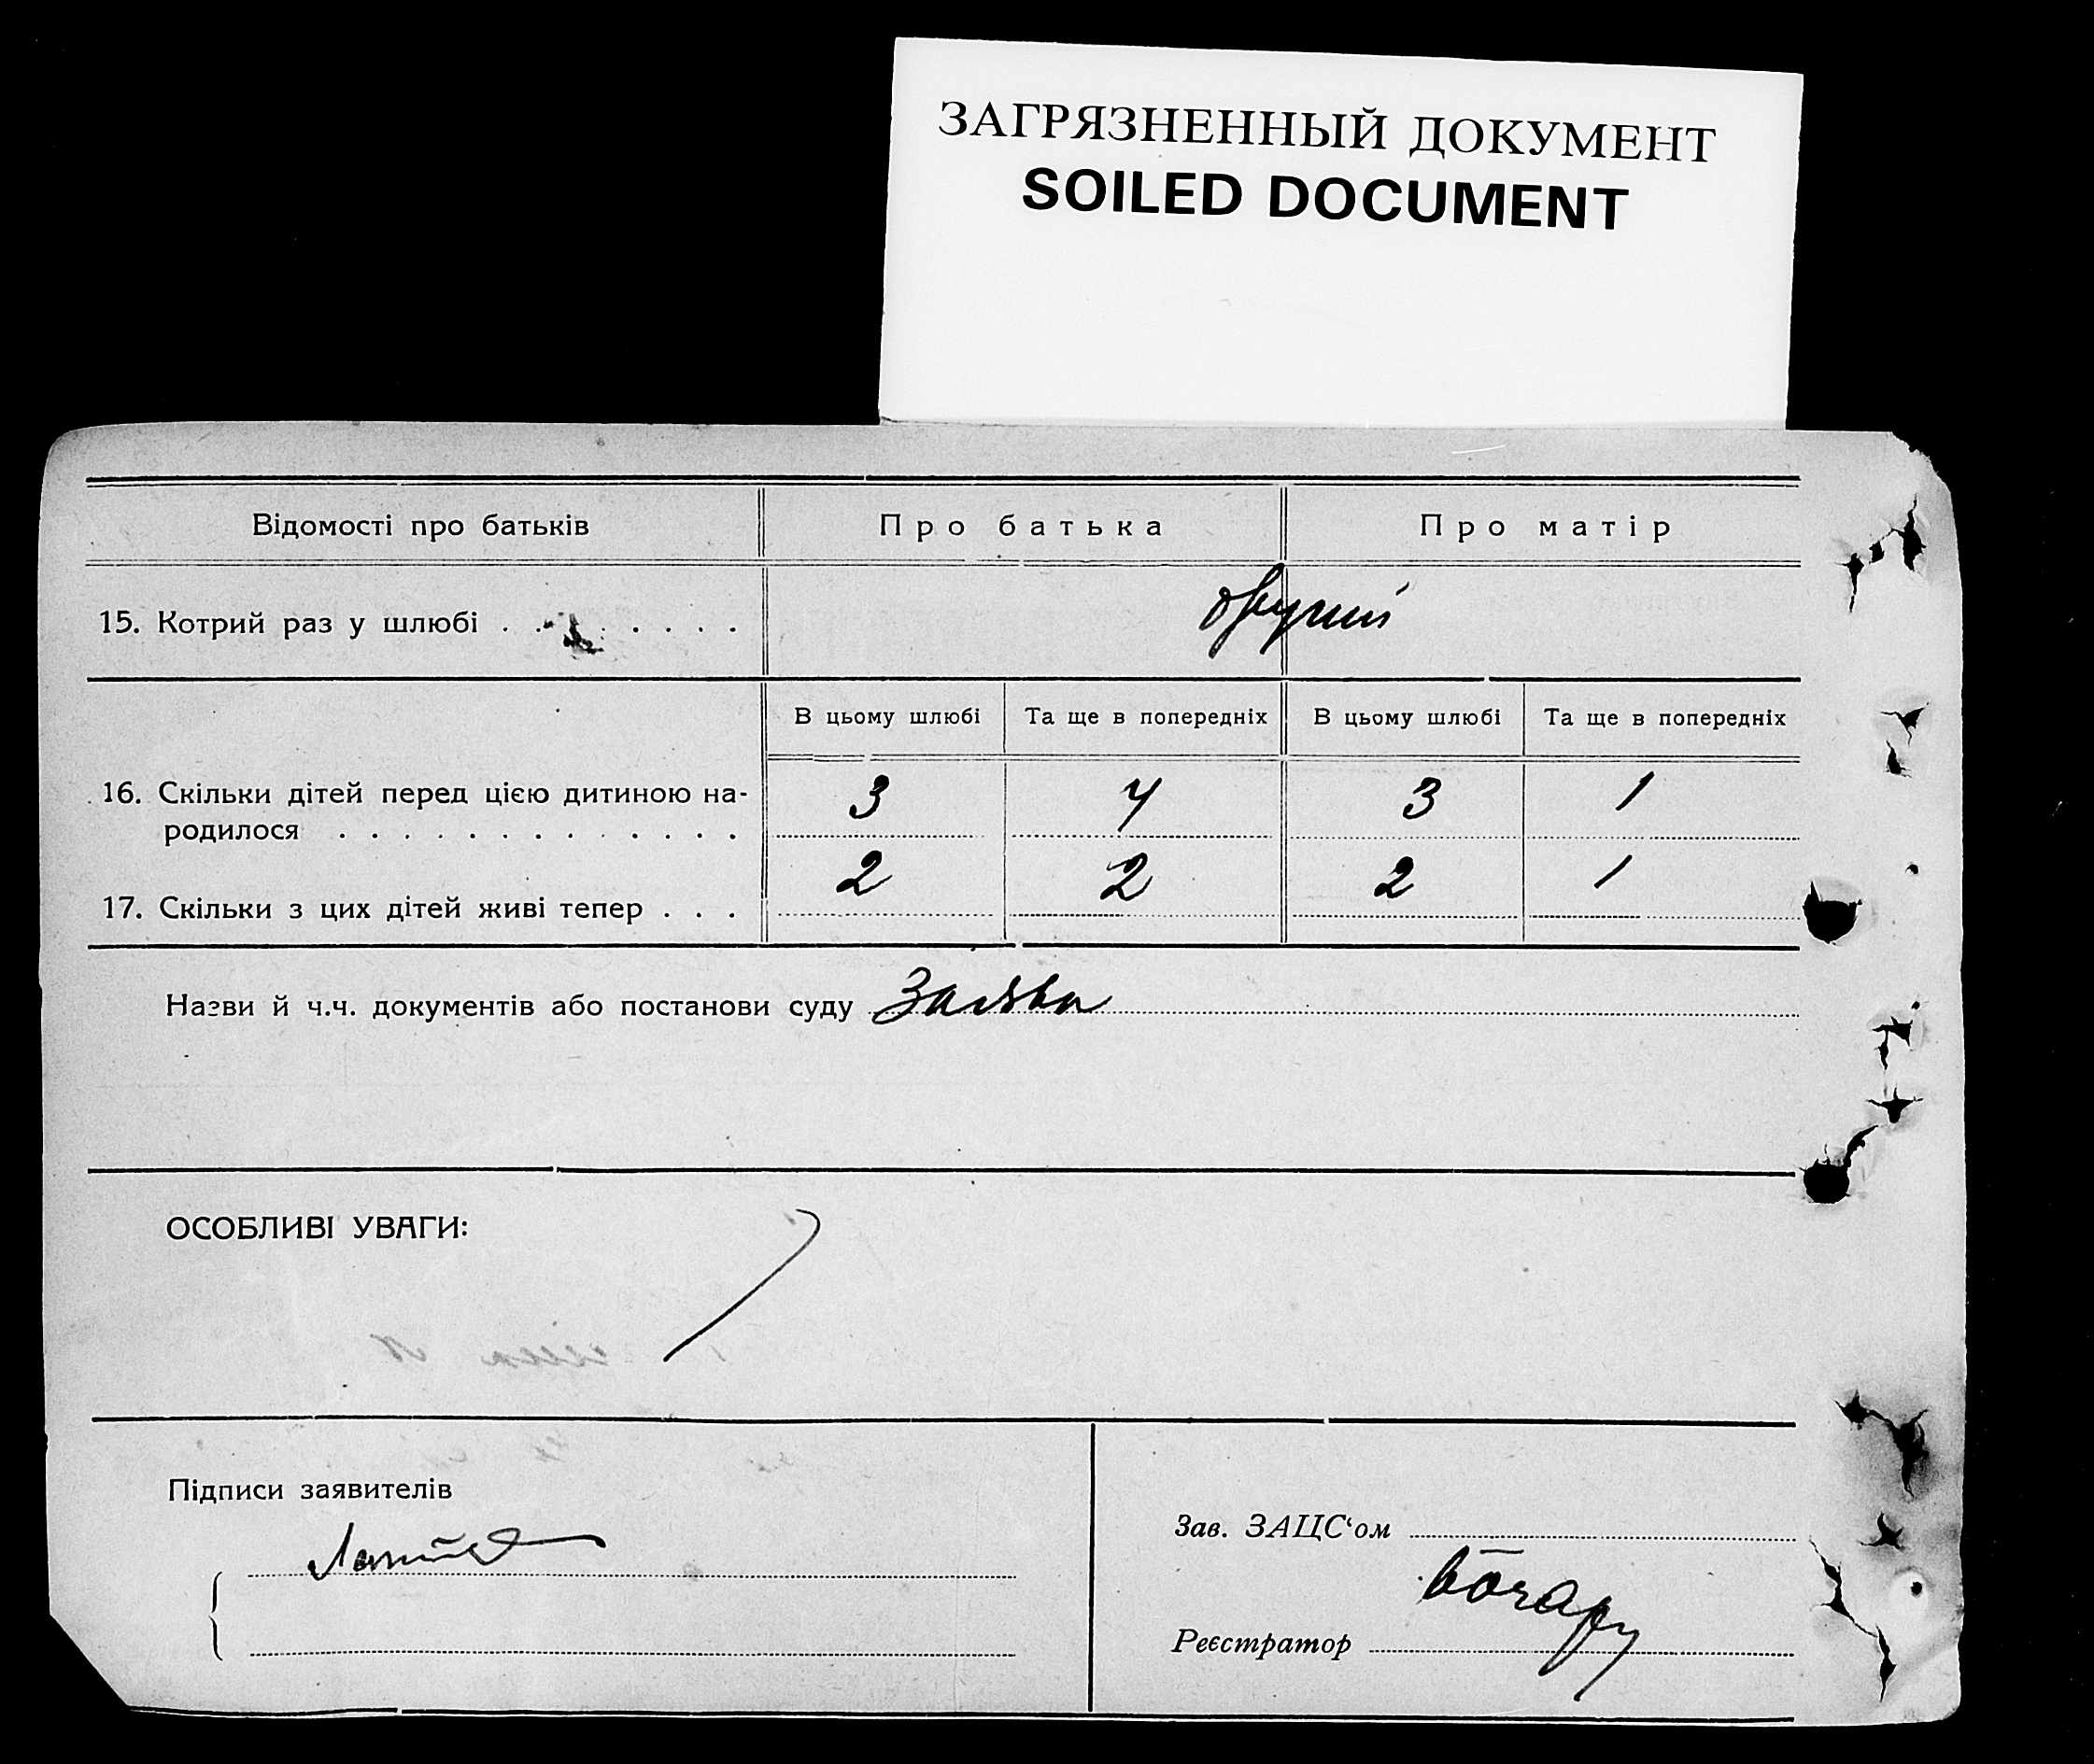 ЗАГРЯЗНЕННЫЙ ДОКУМЕНТ
SOILED DOCUMENT
Відомості про батьків Про батька Про матір
15. Котрий раз у шлюбі . . . . . . . . другий
В цьому шлюбі Та ще в попередніх В цьому шлюбі Та ще в попередніх
16. Скільки дітей перед цією дитиною на-
родилося . . . . . . . . . . . . . 3 4 3 1
17. Скільки з цих дітей живі тепер . . . 2 2 2 1
Назви й ч.ч. документів або постанови суду Заява
ОСОБЛИВІ УВАГИ:
Підписи заявителів
Зав. ЗАЦС‘ом
Реєстратор